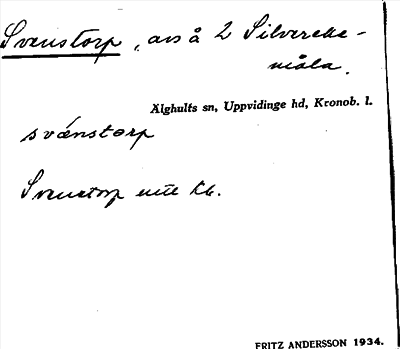 Svenstorp, avs å 2 Silvereke-
måla.
Älghults sn, Uppvidinge hd, Kronob. l.
svänstorp
Svenstorp
FRITZ ANDERSSON 1934.